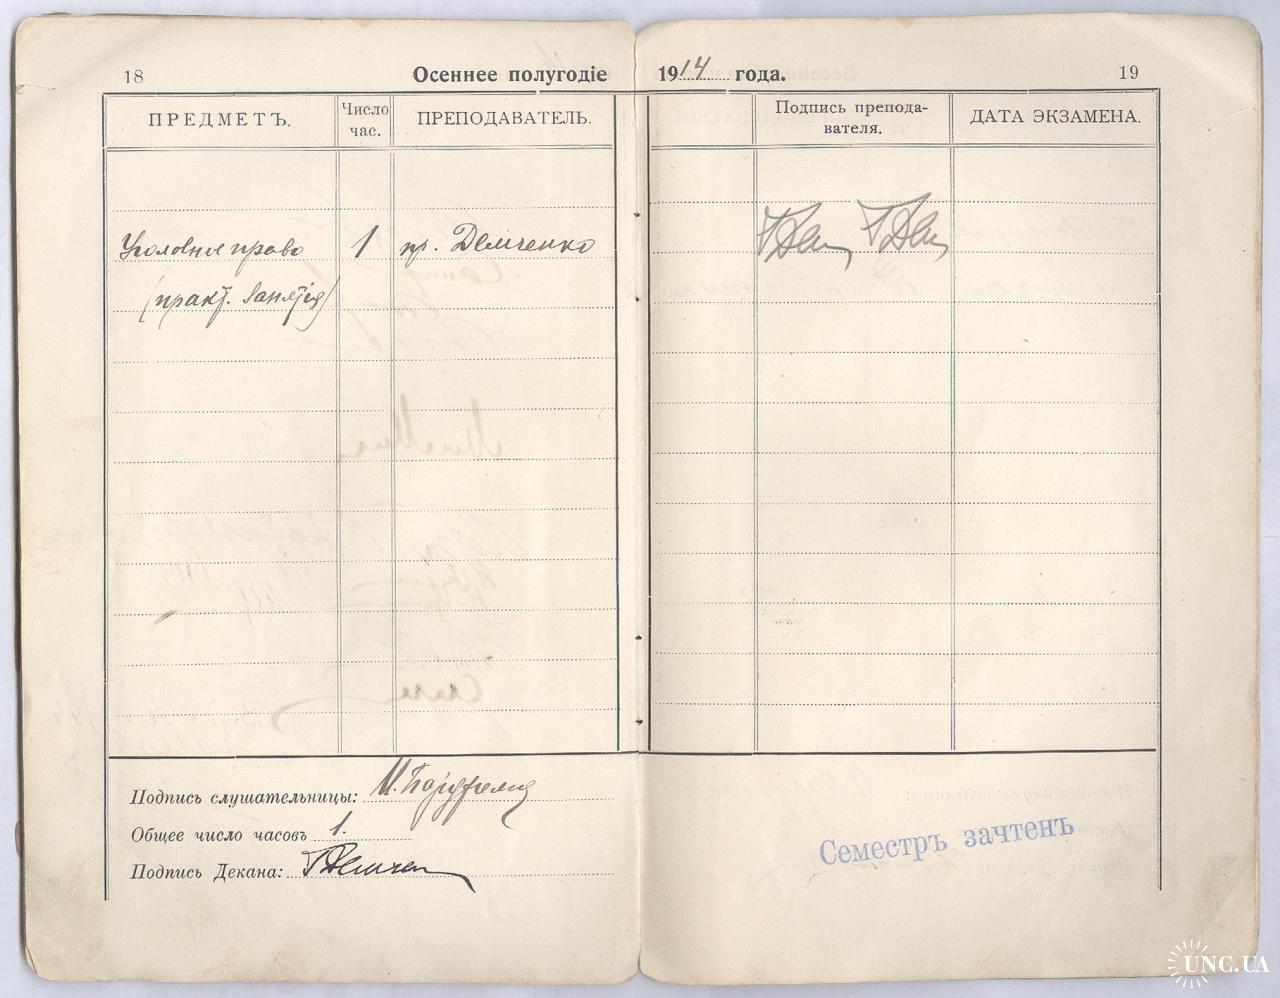 18
Осеннее полугодіе 1914 года.
19
ПРЕДМЕТЪ.
Число час.
ПРЕПОДАВАТЕЛЬ.
Подпись препода-
вателя.
ДАТА ЭКЗАМЕНА.
Уголовное право 1 пр. Демченко
(практ. занятія)
Подпись слушательницы:
Общее число часовъ 1.
Подпись Декана:
Семестръ зачтенъ
UNC.UA